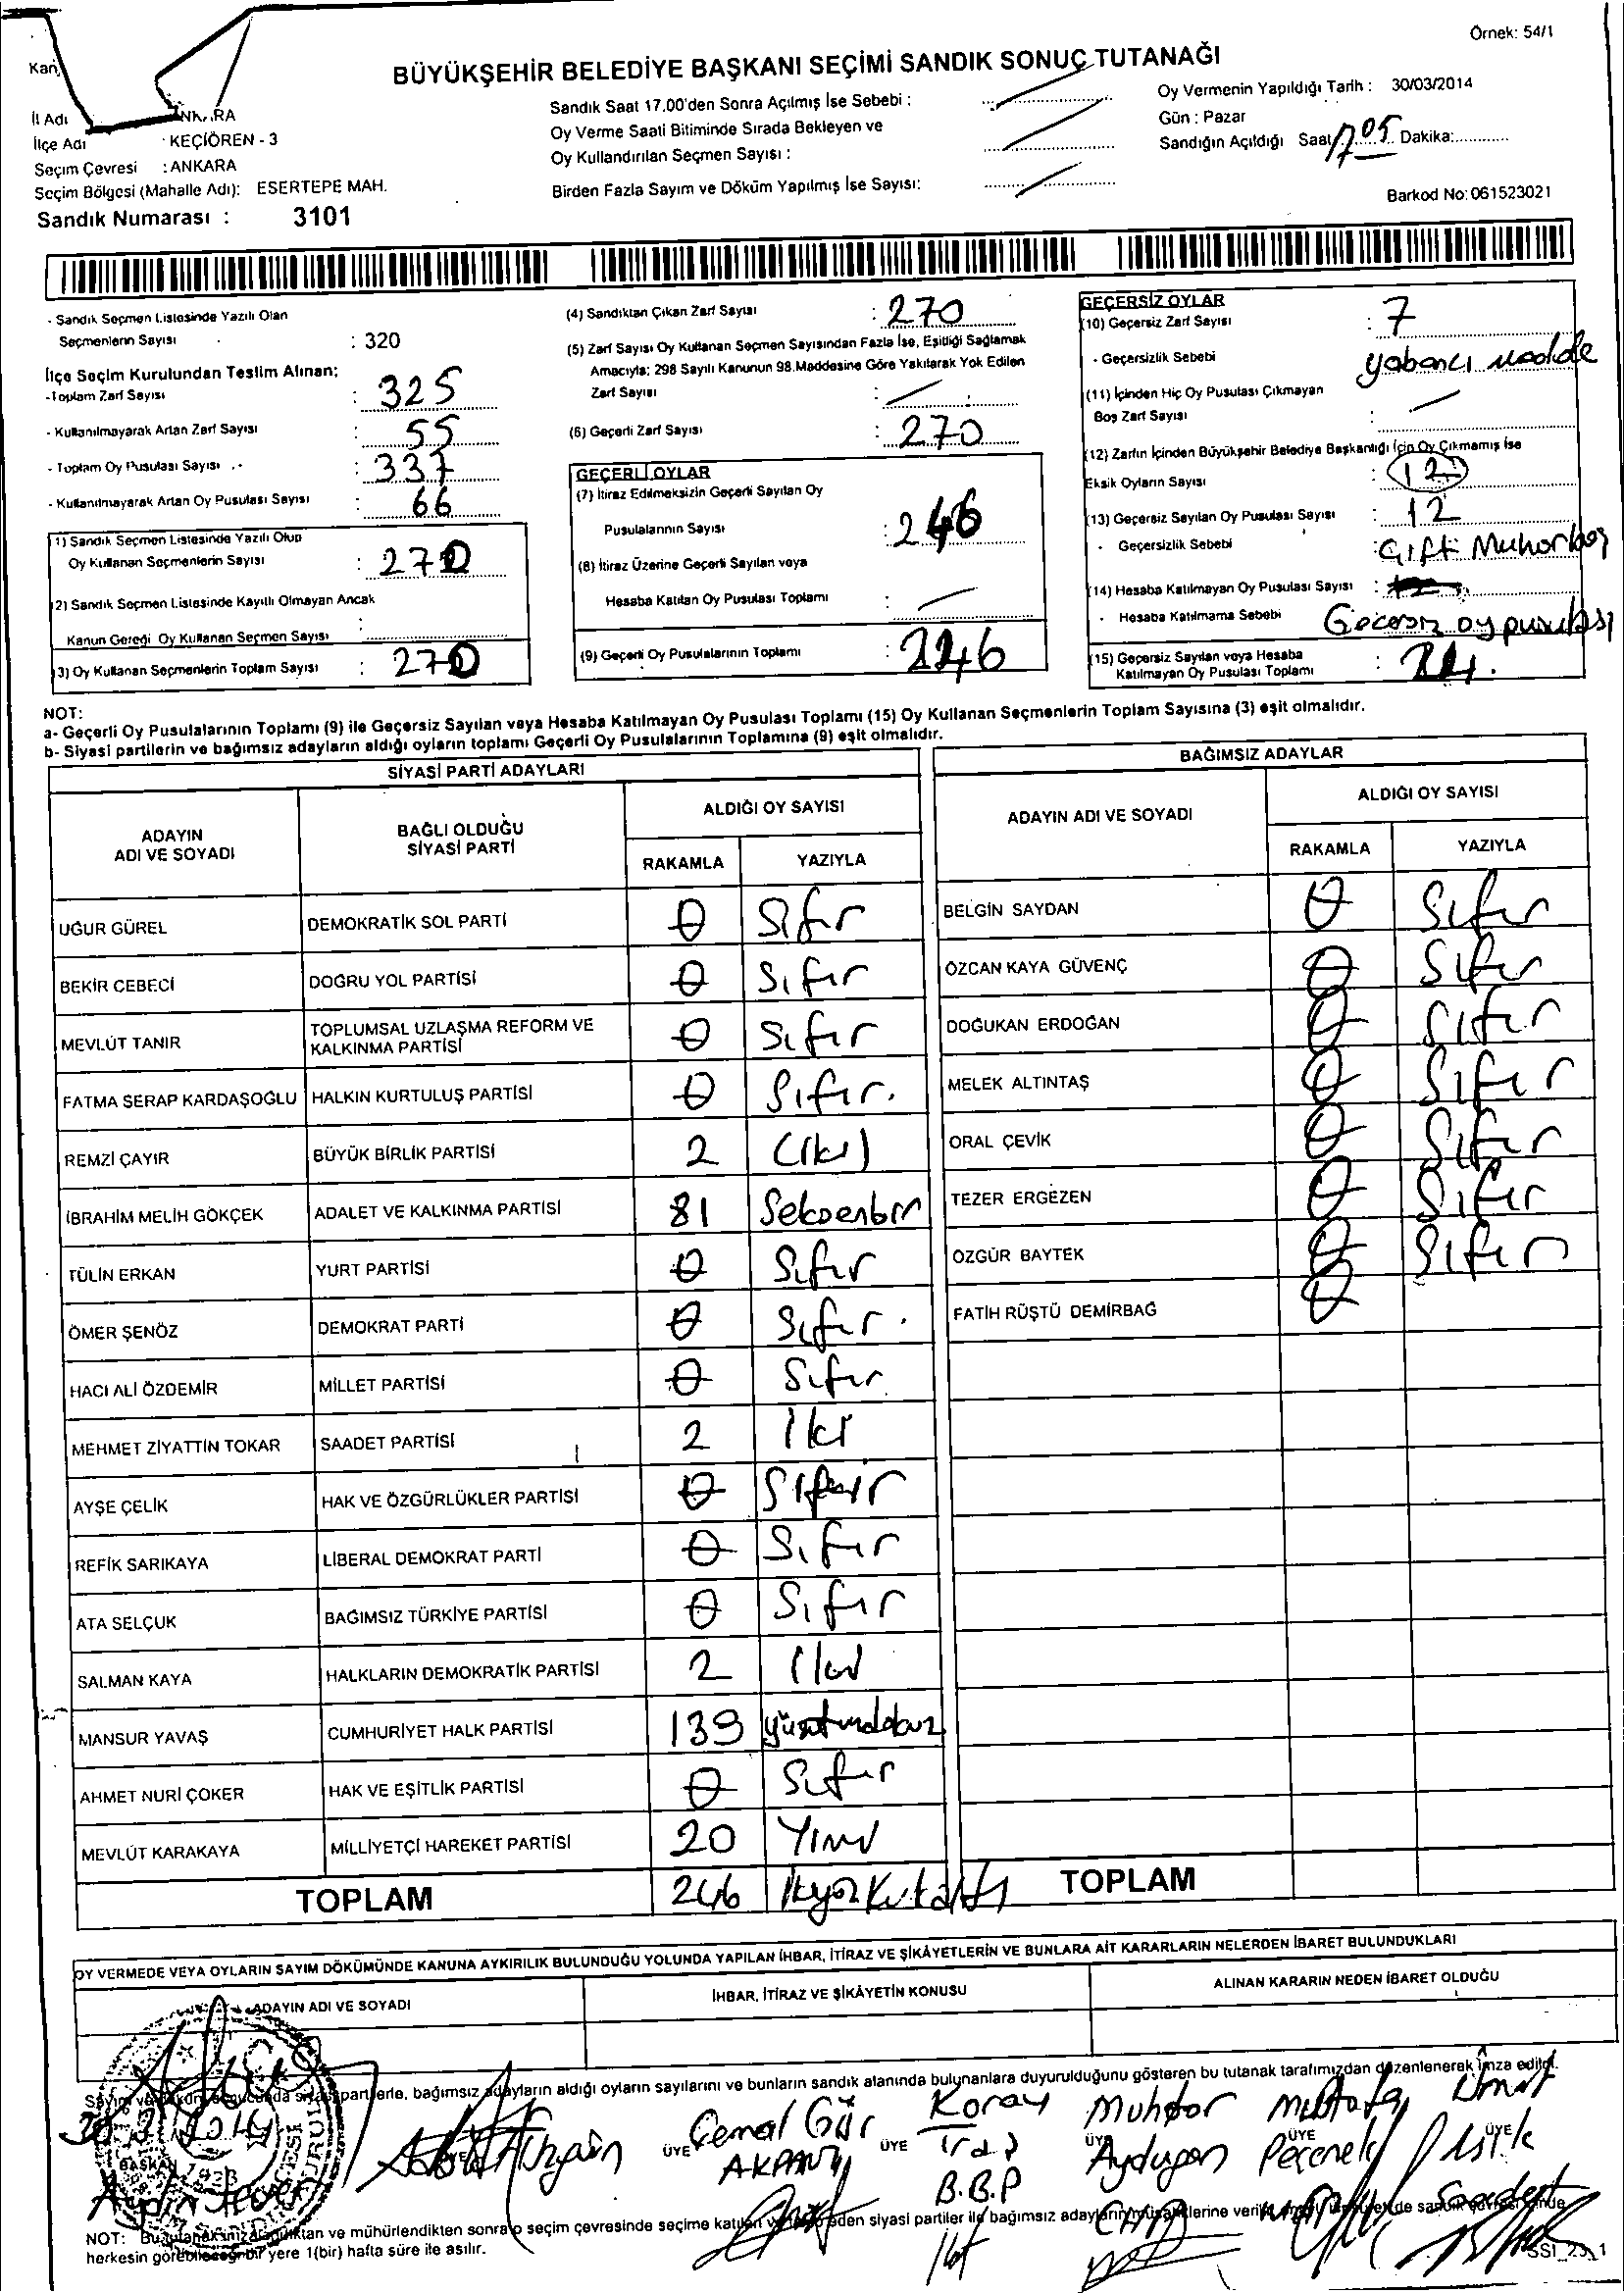 Örnek: 54/1
BÜYÜKŞEHİR BELEDİYE BAŞKANI SEÇİMİ SANDIK SONUÇ TUTANAĞI
İl Adı
İlçe Adı : KEÇİÖREN - 3
Seçim Çevresi : ANKARA
Seçim Bölgesi (Mahalle Adı): ESERTEPE MAH.
Sandık Numarası : 3101
Sandık Saat 17.00'den Sonra Açılmış İse Sebebi :
Oy Verme Saati Bitiminde Sırada Bekleyen ve
Oy Kullandırılan Seçmen Sayısı :
Birden Fazla Sayım ve Döküm Yapılmış İse Sayısı:
Oy Vermenin Yapıldığı Tarih : 30/03/2014
Gün : Pazar
Sandığın Açıldığı Saat 17.05 Dakika:
Barkod No: 061523021
- Sandık Seçmen Listesinde Yazılı Olan
Seçmenlerin Sayısı : 320
İlçe Seçim Kurulundan Teslim Alınan;
- Toplam Zarf Sayısı : 325
- Kullanılmayarak Artan Zarf Sayısı : 55
- Toplam Oy Pusulası Sayısı : 337
- Kullanılmayarak Artan Oy Pusulası Sayısı : 66
(1) Sandık Seçmen Listesinde Yazılı Olup
Oy Kullanan Seçmenlerin Sayısı : 270
(2) Sandık Seçmen Listesinde Kayıtlı Olmayan Ancak
Kanun Gereği Oy Kullanan Seçmen Sayısı :
(3) Oy Kullanan Seçmenlerin Toplam Sayısı : 270
(4) Sandıktan Çıkan Zarf Sayısı : 270
(5) Zarf Sayısı Oy Kullanan Seçmen Sayısından Fazla İse, Eşitliği Sağlamak
Amacıyla; 298 Sayılı Kanunun 98.Maddesine Göre Yakılarak Yok Edilen
Zarf Sayısı :
(6) Geçerli Zarf Sayısı : 270
GEÇERLİ OYLAR
(7) İtiraz Edilmeksizin Geçerli Sayılan Oy
Pusulalarının Sayısı : 246
(8) İtiraz Üzerine Geçerli Sayılan veya
Hesaba Katılan Oy Pusulası Toplamı :
(9) Geçerli Oy Pusulalarının Toplamı : 246
GEÇERSİZ OYLAR
(10) Geçersiz Zarf Sayısı : 7
- Geçersizlik Sebebi yabancı madde
(11) İçinden Hiç Oy Pusulası Çıkmayan
Boş Zarf Sayısı :
(12) Zarfın İçinden Büyükşehir Belediye Başkanlığı İçin Oy Çıkmamış İse
Eksik Oyların Sayısı : 12
(13) Geçersiz Sayılan Oy Pusulası Sayısı : 12
- Geçersizlik Sebebi : Çift
(14) Hesaba Katılmayan Oy Pusulası Sayısı :
- Hesaba Katılmama Sebebi Geçersiz oy pusulası
(15) Geçersiz Sayılan veya Hesaba
Katılmayan Oy Pusulası Toplamı : 24.
NOT:
a- Geçerli Oy Pusulalarının Toplamı (9) ile Geçersiz Sayılan veya Hesaba Katılmayan Oy Pusulası Toplamı (15) Oy Kullanan Seçmenlerin Toplam Sayısına (3) eşit olmalıdır.
b- Siyasi partilerin ve bağımsız adayların aldığı oyların toplamı Geçerli Oy Pusulalarının Toplamına (9) eşit olmalıdır.
SİYASİ PARTİ ADAYLARI
ADAYIN
ADI VE SOYADI
BAĞLI OLDUĞU
SİYASİ PARTİ
ALDIĞI OY SAYISI
RAKAMLA YAZIYLA
UĞUR GÜREL DEMOKRATİK SOL PARTİ 0 Sıfır
BEKİR CEBECİ DOĞRU YOL PARTİSİ 0 Sıfır
MEVLÜT TANIR TOPLUMSAL UZLAŞMA REFORM VE
KALKINMA PARTİSİ 0 Sıfır
FATMA SERAP KARDAŞOĞLU HALKIN KURTULUŞ PARTİSİ 0 Sıfır.
REMZİ ÇAYIR BÜYÜK BİRLİK PARTİSİ 2 (İki)
İBRAHİM MELİH GÖKÇEK ADALET VE KALKINMA PARTİSİ 81 Seksenbir
TÜLİN ERKAN YURT PARTİSİ 0 Sıfır
ÖMER ŞENÖZ DEMOKRAT PARTİ 0 Sıfır.
HACI ALİ ÖZDEMİR MİLLET PARTİSİ 0 Sıfır
MEHMET ZİYATTİN TOKAR SAADET PARTİSİ 2 İki
AYŞE ÇELİK HAK VE ÖZGÜRLÜKLER PARTİSİ 0 Sıfır
REFİK SARIKAYA LİBERAL DEMOKRAT PARTİ 0 Sıfır
ATA SELÇUK BAĞIMSIZ TÜRKİYE PARTİSİ 0 Sıfır
SALMAN KAYA HALKLARIN DEMOKRATİK PARTİSİ 2 İki
MANSUR YAVAŞ CUMHURİYET HALK PARTİSİ 139 yüzotuzdokuz
AHMET NURİ ÇOKER HAK VE EŞİTLİK PARTİSİ 0 Sıfır
MEVLÜT KARAKAYA MİLLİYETÇİ HAREKET PARTİSİ 20 Yirmi
TOPLAM 246 İkiyüzkırkaltı
BAĞIMSIZ ADAYLAR
ADAYIN ADI VE SOYADI
ALDIĞI OY SAYISI
RAKAMLA YAZIYLA
BELGİN SAYDAN 0 Sıfır
ÖZCAN KAYA GÜVENÇ 0 Sıfır
DOĞUKAN ERDOĞAN 0 Sıfır
MELEK ALTINTAŞ 0 Sıfır
ORAL ÇEVİK 0 Sıfır
TEZER ERGEZEN 0 Sıfır
ÖZGÜR BAYTEK 0 Sıfır
FATİH RÜŞTÜ DEMİRBAĞ 0
TOPLAM
OY VERMEDE VEYA OYLARIN SAYIM DÖKÜMÜNDE KANUNA AYKIRILIK BULUNDUĞU YOLUNDA YAPILAN İHBAR, İTİRAZ VE ŞİKÂYETLERİN VE BUNLARA AİT KARARLARIN NELERDEN İBARET BULUNDUKLARI
ADAYIN ADI VE SOYADI İHBAR, İTİRAZ VE ŞİKÂYETİN KONUSU ALINAN KARARIN NEDEN İBARET OLDUĞU
partilerle, bağımsız adayların aldığı oyların sayılarını ve bunların sandık alanında bulunanlara duyurulduğunu gösteren bu tutanak tarafımızdan düzenlenerek imza edildi.
BAŞKAN
Aydın
ÜYE Cemal Gür
ÜYE Koray
B.B.P
ÜYE Muhtar
Aydugan
CHP
ÜYE Mustafa
Peçenek
ÜYE Ümit
Işık
Saadet
NOT: ve mühürlendikten sonra o seçim çevresinde seçime katılan siyasi partiler ile bağımsız aday
herkesin görebileceği bir yere 1(bir) hafta süre ile asılır.
SSI_23_1